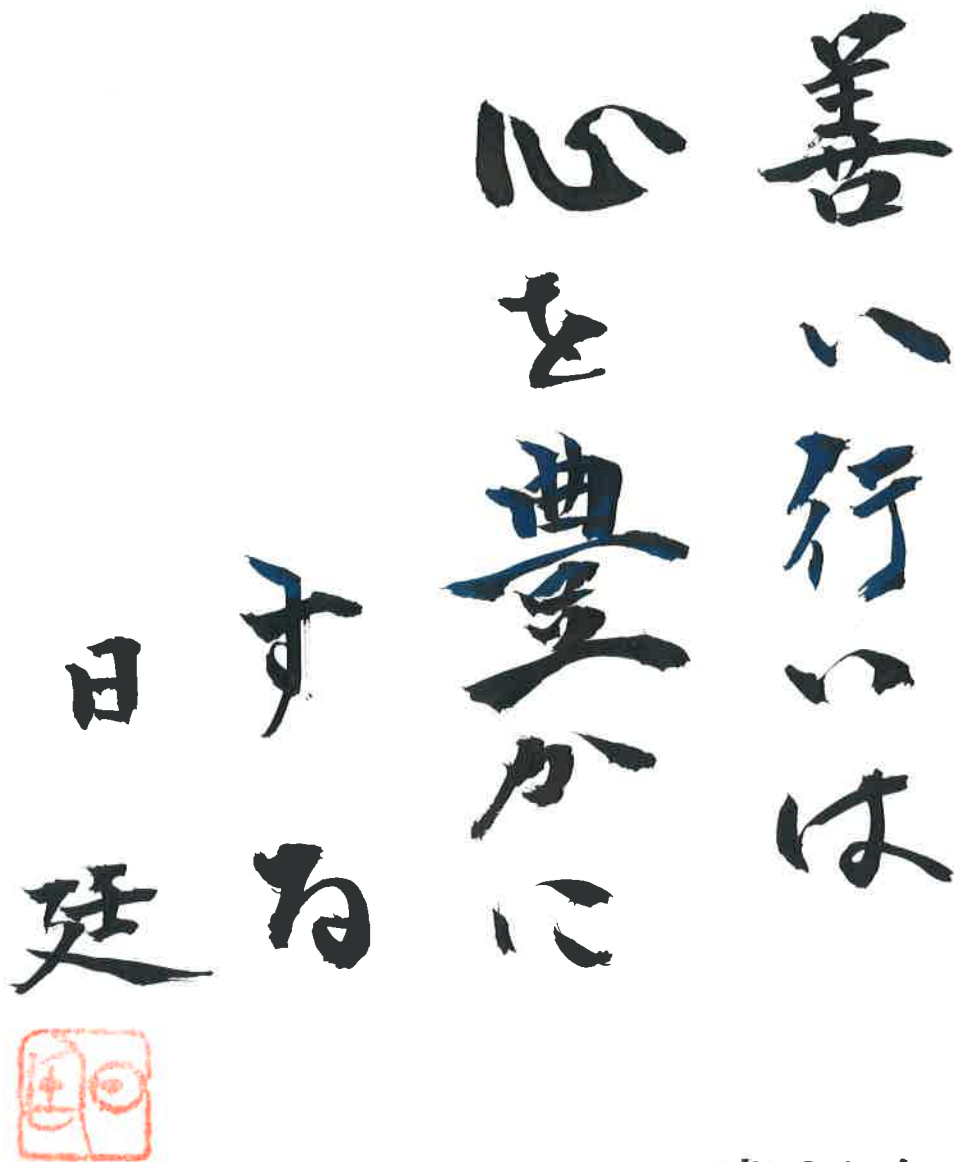 善い行いは
心を豊かに
する
日廷